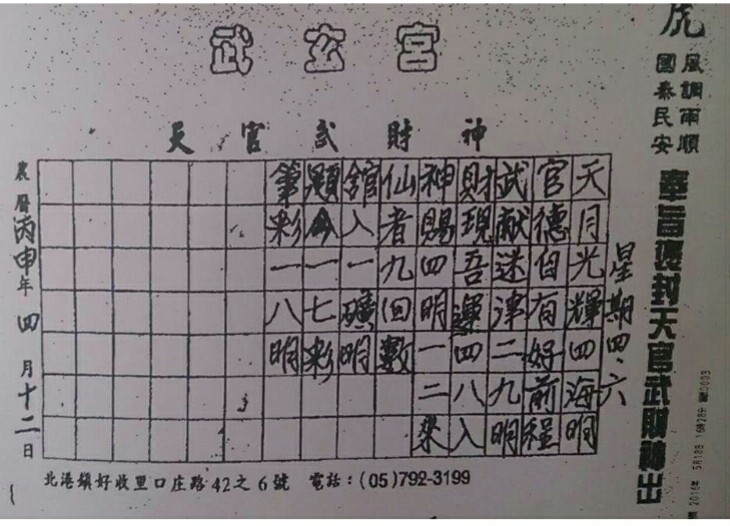 武玄宮
天官武財神
虎
風調雨順
國泰民安
奉旨褒封天官武財神出
星期四、六
天月光輝四海明
官德自有好前程
武献迷津二九明
財現吾運四八入
神賜四明一二來
仙者九回數
館入一礦明
顯今一七彩
筆彩一八明
農曆丙申年四月十二日
北港鎮好收里口庄路42之6號 電話：(05)792-3199